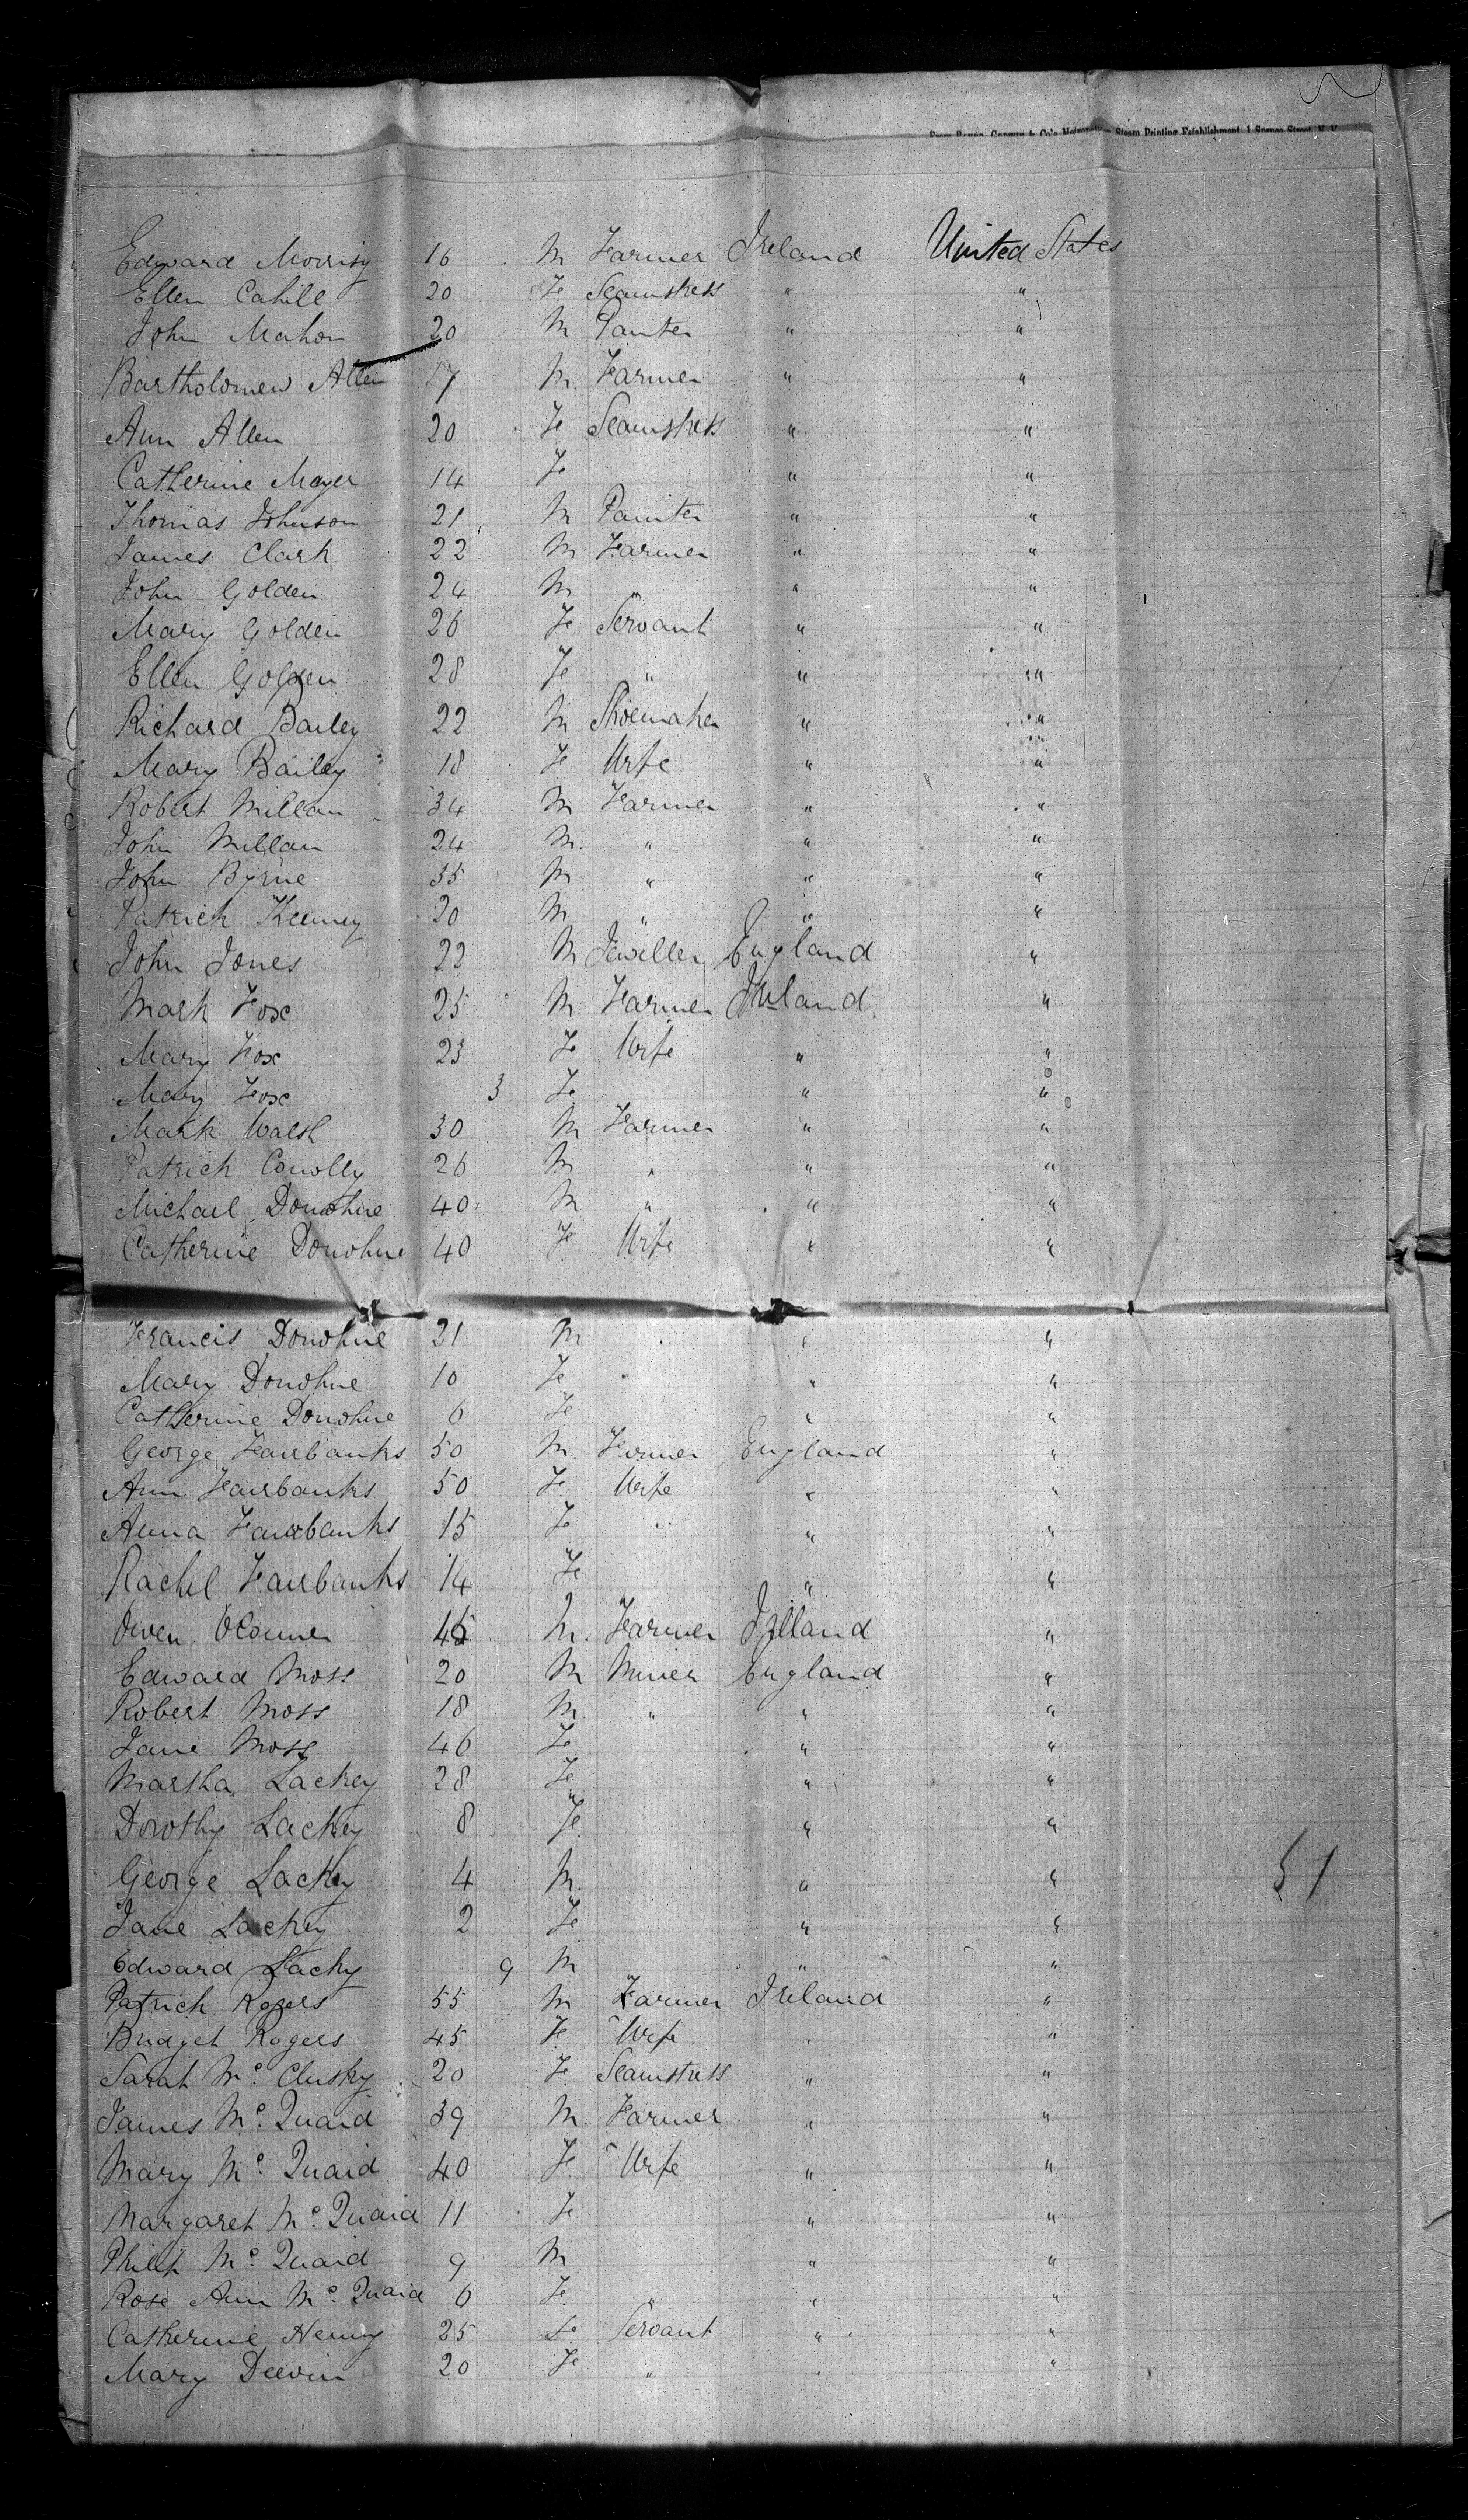 Steam Printing Establishment, 1 Spruce Street, N. Y.
Edward Morrisy 16 M Farmer Ireland United States
Ellen Cahill 20 Fe Seamstress " "
John Mahon 20 M Painter " "
Bartholomew Allen 17 M. Farmer " "
Ann Allen 20 Fe Seamstress " "
Catherine Mayer 14 Fe " "
Thomas Johnson 21 M Painter " "
James Clark 22 M Farmer " "
John Golden 24 M " " "
Mary Golden 26 Fe Servant " "
Ellen Golden 28 Fe " " "
Richard Bailey 22 M Shoemaker " "
Mary Bailey 18 Fe Wife " "
Robert Millan 34 M Farmer " "
John Millan 24 M. " " "
John Byrne 35 M " " "
Patrick Keeney 20 M " " "
John Jones 22 M Jewiller England "
Mark Fox 25 M Farmer Ireland "
Mary Fox 23 Fe Wife " "
Mary Fox 3 Fe " "
Mark Walsh 30 M Farmer " "
Patrick Conolly 26 M " " "
Michael Donohue 40 M " " "
Catherine Donohue 40 Fe Wife " "
Francis Donohue 21 M " "
Mary Donohue 10 Fe " "
Catherine Donohue 6 Fe " "
George Fairbanks 50 M. Farmer England "
Ann Fairbanks 50 Fe Wife " "
Anna Fairbanks 15 Fe " "
Rachel Fairbanks 14 Fe " "
Owen OConner 45 M. Farmer Ireland "
Edward Moss 20 M Miner England "
Robert Moss 18 M " " "
Jane Moss 46 Fe " "
Martha Lackey 28 Fe " "
Dorothy Lackey 8 Fe " "
George Lackey 4 M. " "
51
Jane Lackey 2 Fe " "
Edward Lacky 9 M " "
Patrick Rogers 55 M Farmer Ireland "
Bridget Rogers 45 Fe Wife " "
Sarah Mc. Clusky 20 Fe Seamstress " "
James Mc. Quaid 39 M. Farmer " "
Mary Mc. Quaid 40 Fe Wife " "
Margaret Mc. Quaid 11 Fe " "
Philip Mc. Quaid 9 M " "
Rose Ann Mc. Quaid 6 Fe " "
Catherine Henry 25 Fe Servant " "
Mary Deevin 20 Fe " " "